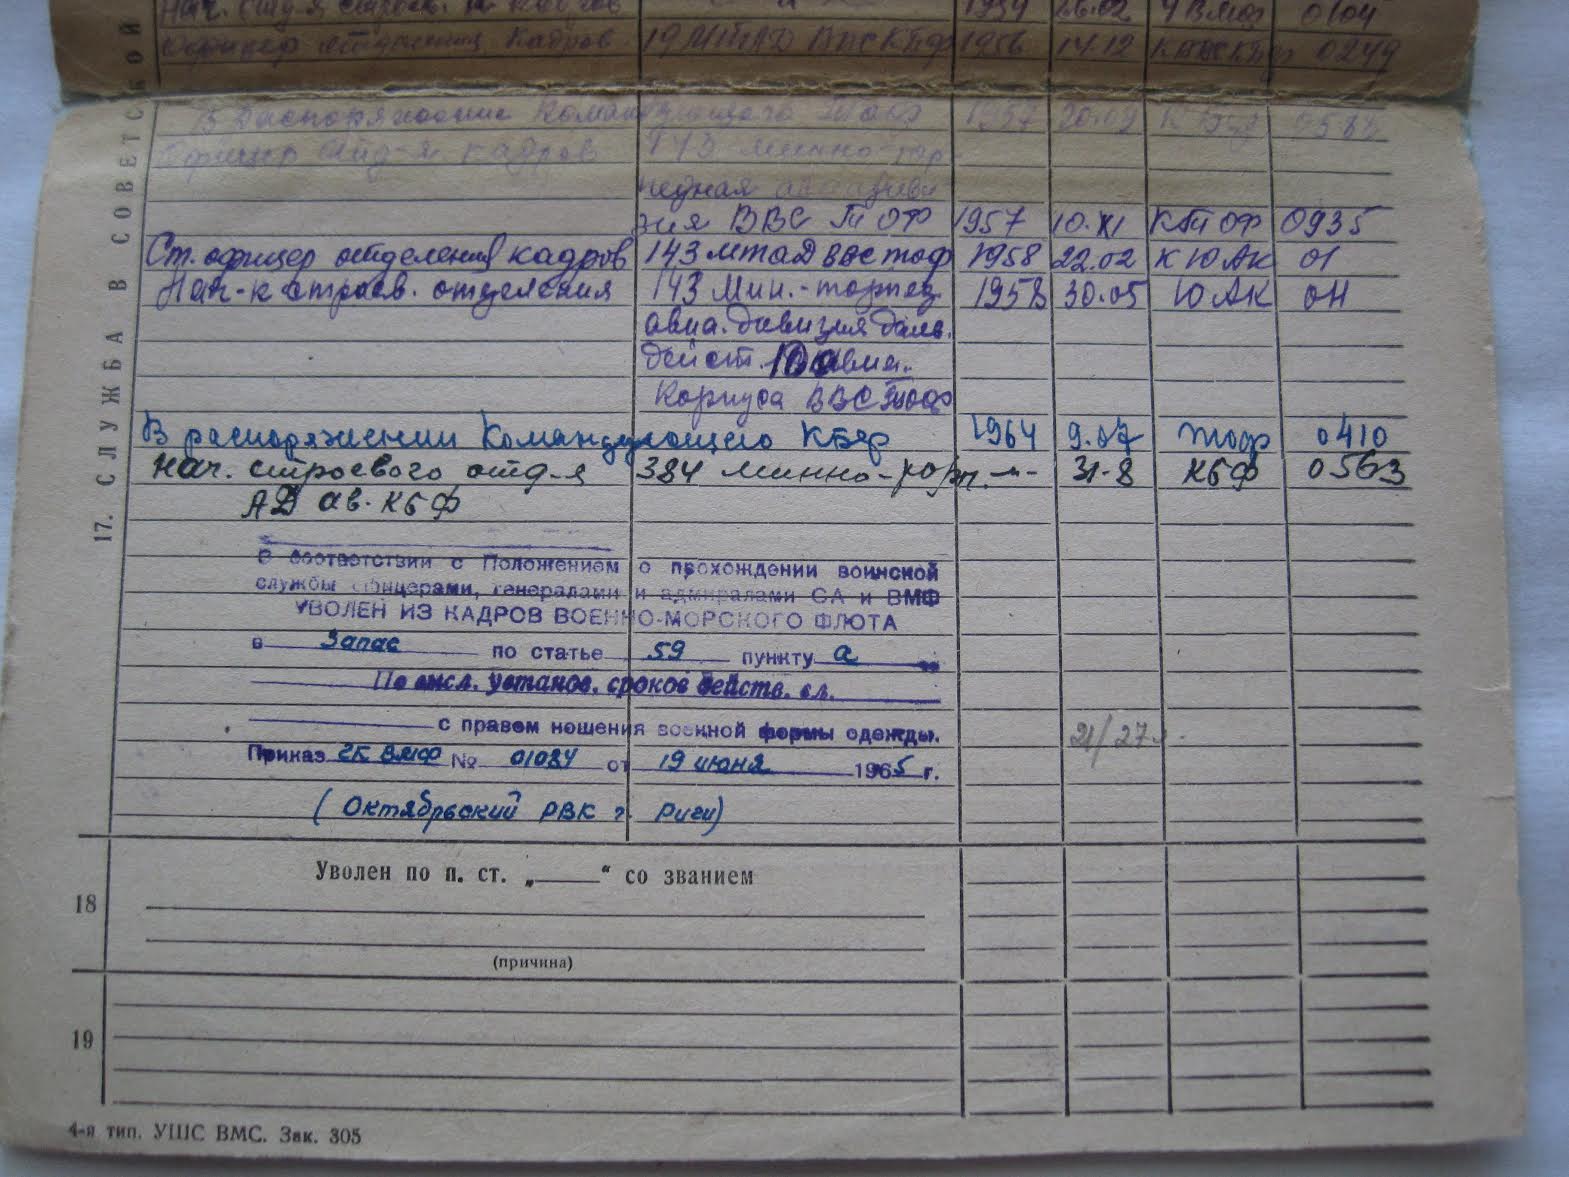 Нач. отд-я строев. и кадров 1954 26.02 ЧВМФ 0104
Офицер отделения кадров 19 МТАД ВВС КБФ 1956 14.12 0249
В распоряжение Командующего ТОФ 1957 20.09 0584
Офицер отд-я кадров 143 минно-тор
педная авиадиви
зия ВВС ТОФ 1957 10.XI КТОФ 0935
Ст. офицер отделения кадров 143 мтаД ВВС тоф 1958 22.02 КЮАК 01
Нач-к строев. отделения 143 Мин.-торпед. 1958 30.05 ЮАК 0Н
авиа. дивизия даль.
дейст. авиа.
Корпуса ВВС Тоф
В распоряжении Командующего КБФ 1964 9.07 тоф 0410
Нач. строевого отд-я 384 минно-торп. -"- 31-8 КБФ 0563
АД ав. КБФ
В соответствии с Положением о прохождении воинской
службы офицерами, генералами и адмиралами СА и ВМФ
УВОЛЕН ИЗ КАДРОВ ВОЕННО-МОРСКОГО ФЛОТА
в запас по статье 59 пункту а
По высл. установ. сроков действ. сл.
с правом ношения военной формы одежды. 21/27
Приказ ГК ВМФ № 01084 от 19 июня 1965 г.
(Октябрьский РВК г. Риги)
17. СЛУЖБА В СОВЕТСКОЙ
18 Уволен по п. ст. „——“ со званием
(причина)
19
4-я тип. УШС ВМС. Зак. 305